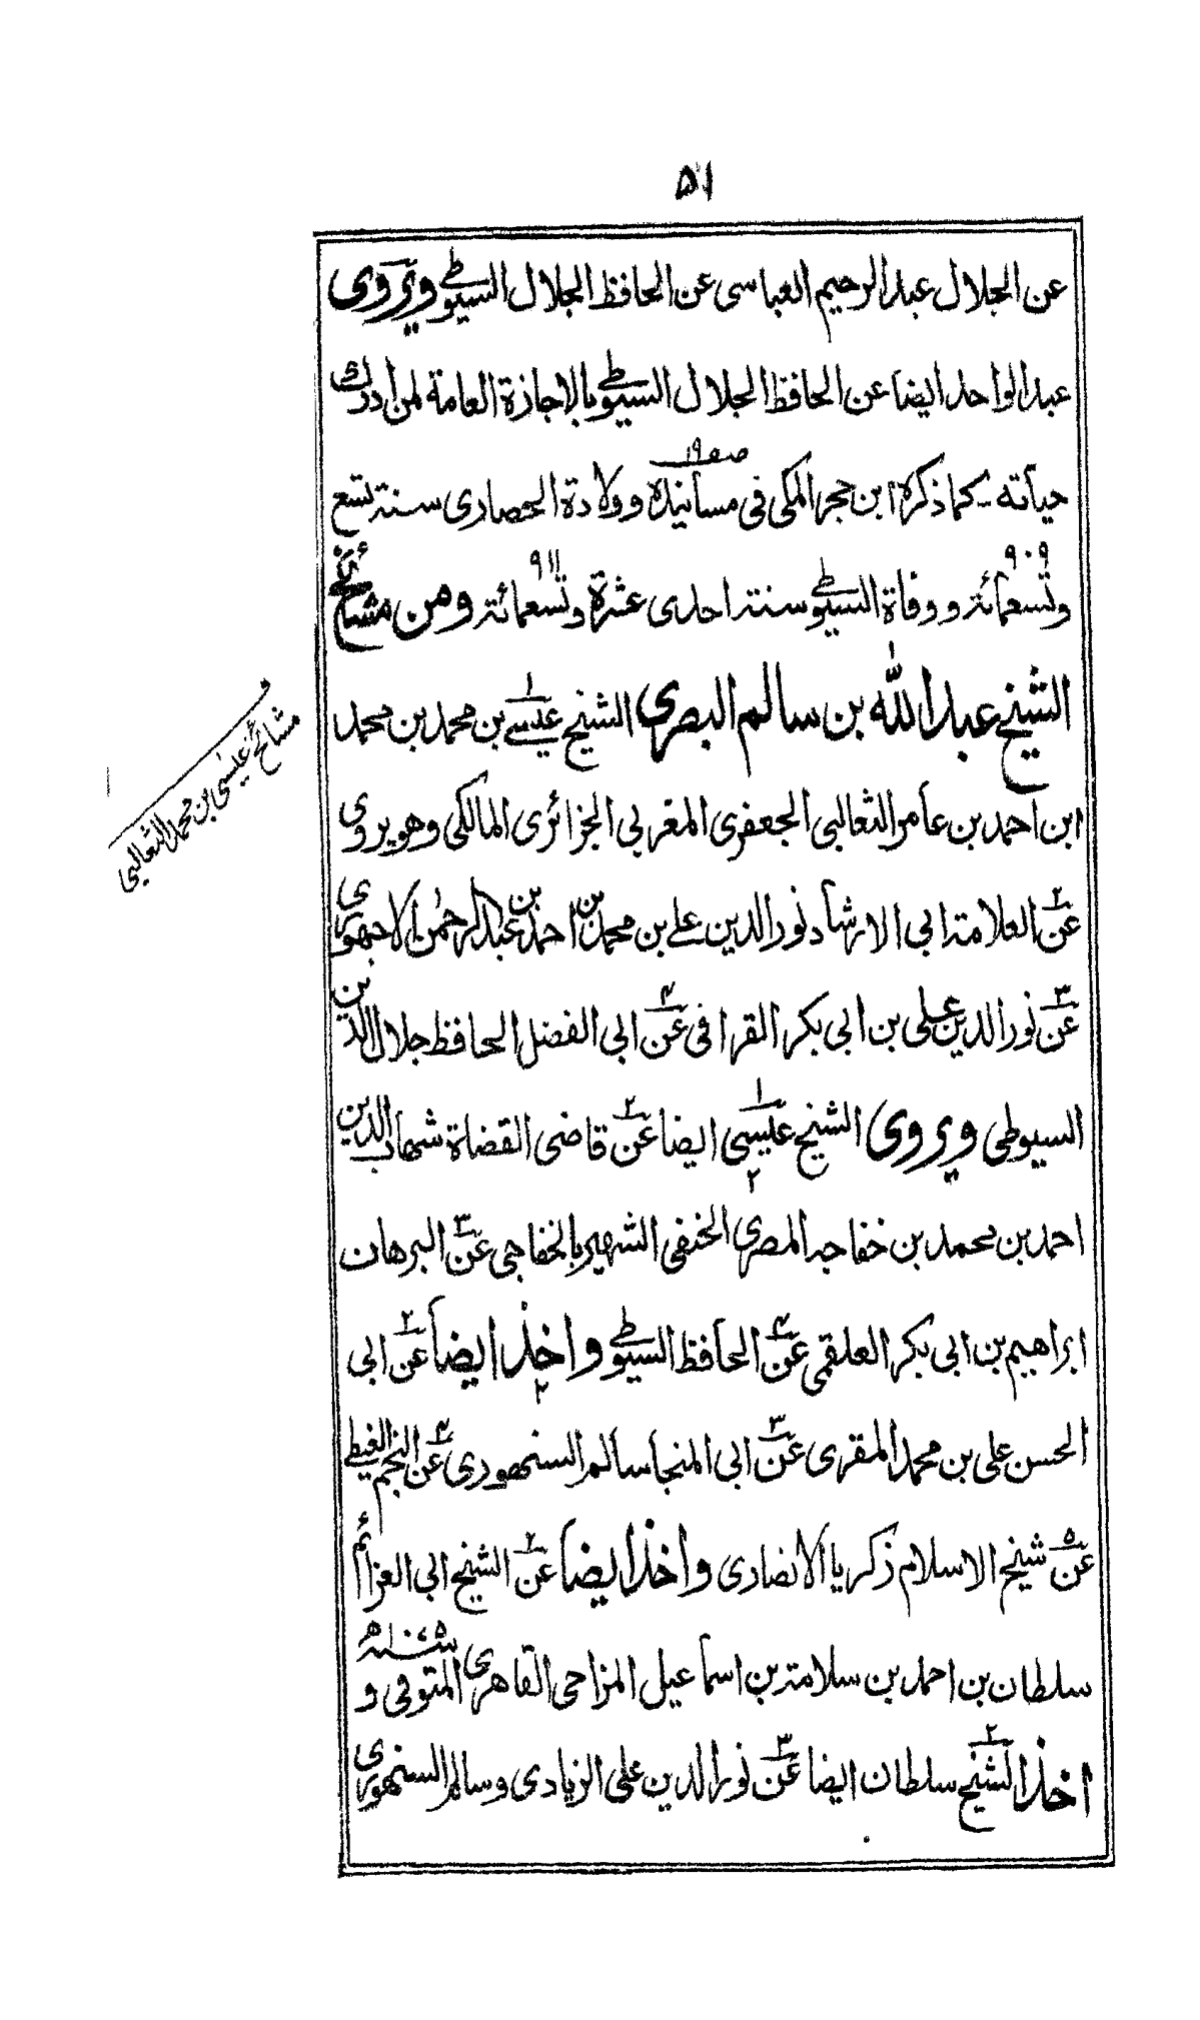 ۵۱
عن الجلال عبدالرحيم العباسى عن الحافظ الجلال السيوطي ويروى
عبدالواحد ايضا عن الحافظ الجلال السيوطي بالاجازة العامة لمن ادرك
حياته - كما ذكره ابن حجر المكى فى مسانيده وولادة الحصارى سنة تسع
صه ١٩
وتسعمائة ووفاة السيوطي سنة احدى عشرة وتسعمائة ومن مشائخ
٩٠٩ ٩١١
الشيخ عبدالله بن سالم البصرى الشيخ عيسے بن محمد بن محمد
١
ابن احمد بن عامر الثعالبى الجعفرى المغربى الجزائرى المالكى وهو يروى
عن العلامة ابى الارشاد نورالدين علے بن محمد بن احمد بن عبدالرحمن الاجهورى
٢
عن نورالدين على بن ابى بكر القرافى عن ابى الفضل الحافظ جلال الدين
٣ ۴
السيوطى ويروى الشيخ عيسى ايضا عن قاضى القضاة شهاب الدين
١ ٢ ٢
احمد بن محمد بن خفاجه المصرى الحنفى الشهير بالخفاجى عن البرهان
٣
ابراهيم بن ابى بكر العلقمى عن الحافظ السيوطي واخذ ايضا عن ابى
۴ ٢ ٢
الحسن على بن محمد المقرى عن ابى المنجا سالم السنهورى عن النجم الغيطے
٣ ۴
عن شيخ الاسلام زكريا الانصارى واخذ ايضا عن الشيخ ابى العزائم
۵ ٢
سلطان بن احمد بن سلامة بن اسماعيل المزاحى القاهرى المتوفى و
سنة ١٠٧۵ھ
اخذ الشيخ سلطان ايضا عن نورالدين على الزيادى وسالم السنهورى
٢ ٣
ف
مشائخ عيسى بن محمد الثعالبى